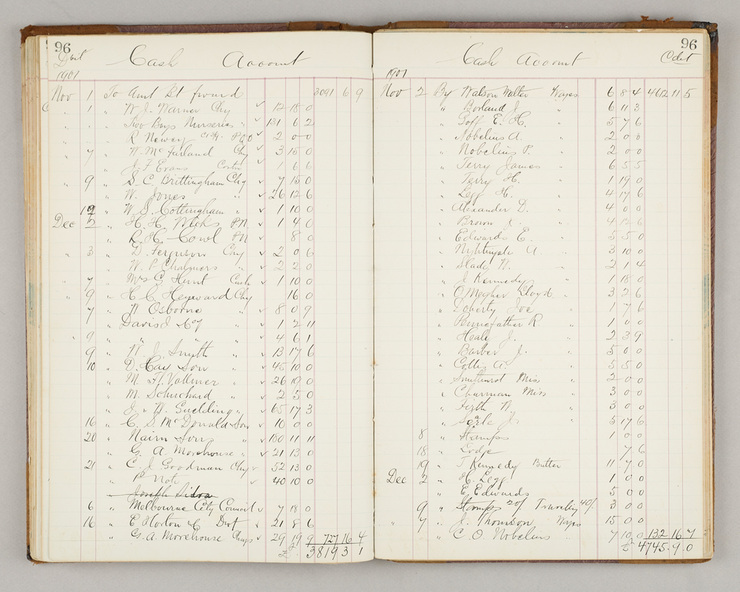 96
Cash Account
1901
Nov 1 To Amt Bt forwd 3091 6 9
1 " W. J. Warner Chq 12 18 0
" Two Bays Nurseries " 181 6 2
" R Newey P.O 2 0 0
7 " W McFarland Chq 3 15 0
" J F Evans 1 6 6
9 " S. C. Brittingham Chq 7 15 0
" W. Jones " 26 12 6
" W. J. Cottingham " 1 10 0
Dec 2 " H. H. P.N. 1 4 0
" R. H. Cowl P.N 8 0
3 " D. Ferguson Chq 2 0 6
" W. P. Chalmers " 2 2 0
7 " Mrs C Hunt 1 10 0
9 " H. C. Heyward Chq 16 0
7 " H Osborne " 8 0 9
" David & Co " 1 2 11
9 " " " 4 6 1
9 " N. J. Smyth " 13 17 6
10 " D. Hay & Son " 46 10 0
" M. H. Vollmer " 26 18 0
" M. Schuchard " 2 5 0
" J. W. " 65 17 3
16 " C. S. McDonald & Son 10 0 0
20 " Nairn & Sons " 180 11 11
" G. A. Morehouse " 21 13 0
21 " E. J. Goodman Chq 52 13 0
" P. Note 40 10 0
" Joseph
6 " Melbourne City Council 7 18 0
16 " E Horton & 21 8 6
" G. A. Morehouse Chqs 29 19 9 727 16 4
£ 3819 3 1
96
Cash Account
Credit
1901
Nov 2 By Watson Walter Wages 6 8 4 4612 11 5
" Borland J. " 6 11 3
" Goff E. H. " 5 7 6
" Nobelius A " 2 0 0
" Nobelius P. " 2 0 0
" Terry James " 6 5 5
" Terry H. " 1 19 0
" Legg H. " 4 17 6
" Alexander D. " 4 0 0
" Brown
" Edwards E. " 5 5 0
" Nightingale A " 3 10 0
" Slady W. " 2 1 4
" J Kennedy " 1 18 0
" O'Meagher Lloyd " 3 2 6
" Doherty Joe " 1 7 6
" Pennefather R " 1 0 0
" Healy J. " 2 3 9
" Barber J. " 5 0 0
" A. " 5 5 0
" Smethurst Miss " 2 0 0
" Chapman Miss " 3 0 0
" Firth W. " 3 0 0
" Searle J. " 5 17 6
8 " Stamps 1 0 0
18 " Lodge 7 6
19 " T. Kennedy Butter 11 7 0
Dec 2 " H. Legg 1 0 0
" E. Edwards 5 0 0
9 " Stamps 20/ Townley 40/ 3 0 0
7 " J. Thomson Wages 15 0 0
" C. O Nobelius 7 10 0 132 16 7
£ 4745 9 0